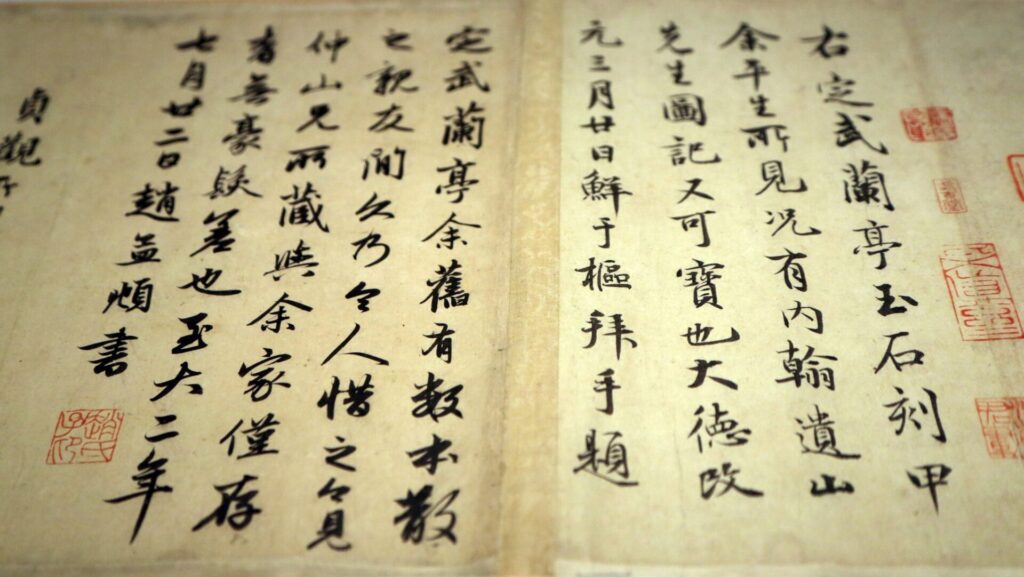 右定武蘭亭玉石刻甲
余平生所見況有内翰遺山
先生圖記又可寶也大德改
元三月廿日鮮于樞拜手題
定武蘭亭余舊有數本散
之親友間久乃令人惜之今見
仲山兄所藏與余家僅存
者無豪髮差也至大二年
七月廿二日趙孟頫書
貞觀
趙氏子印